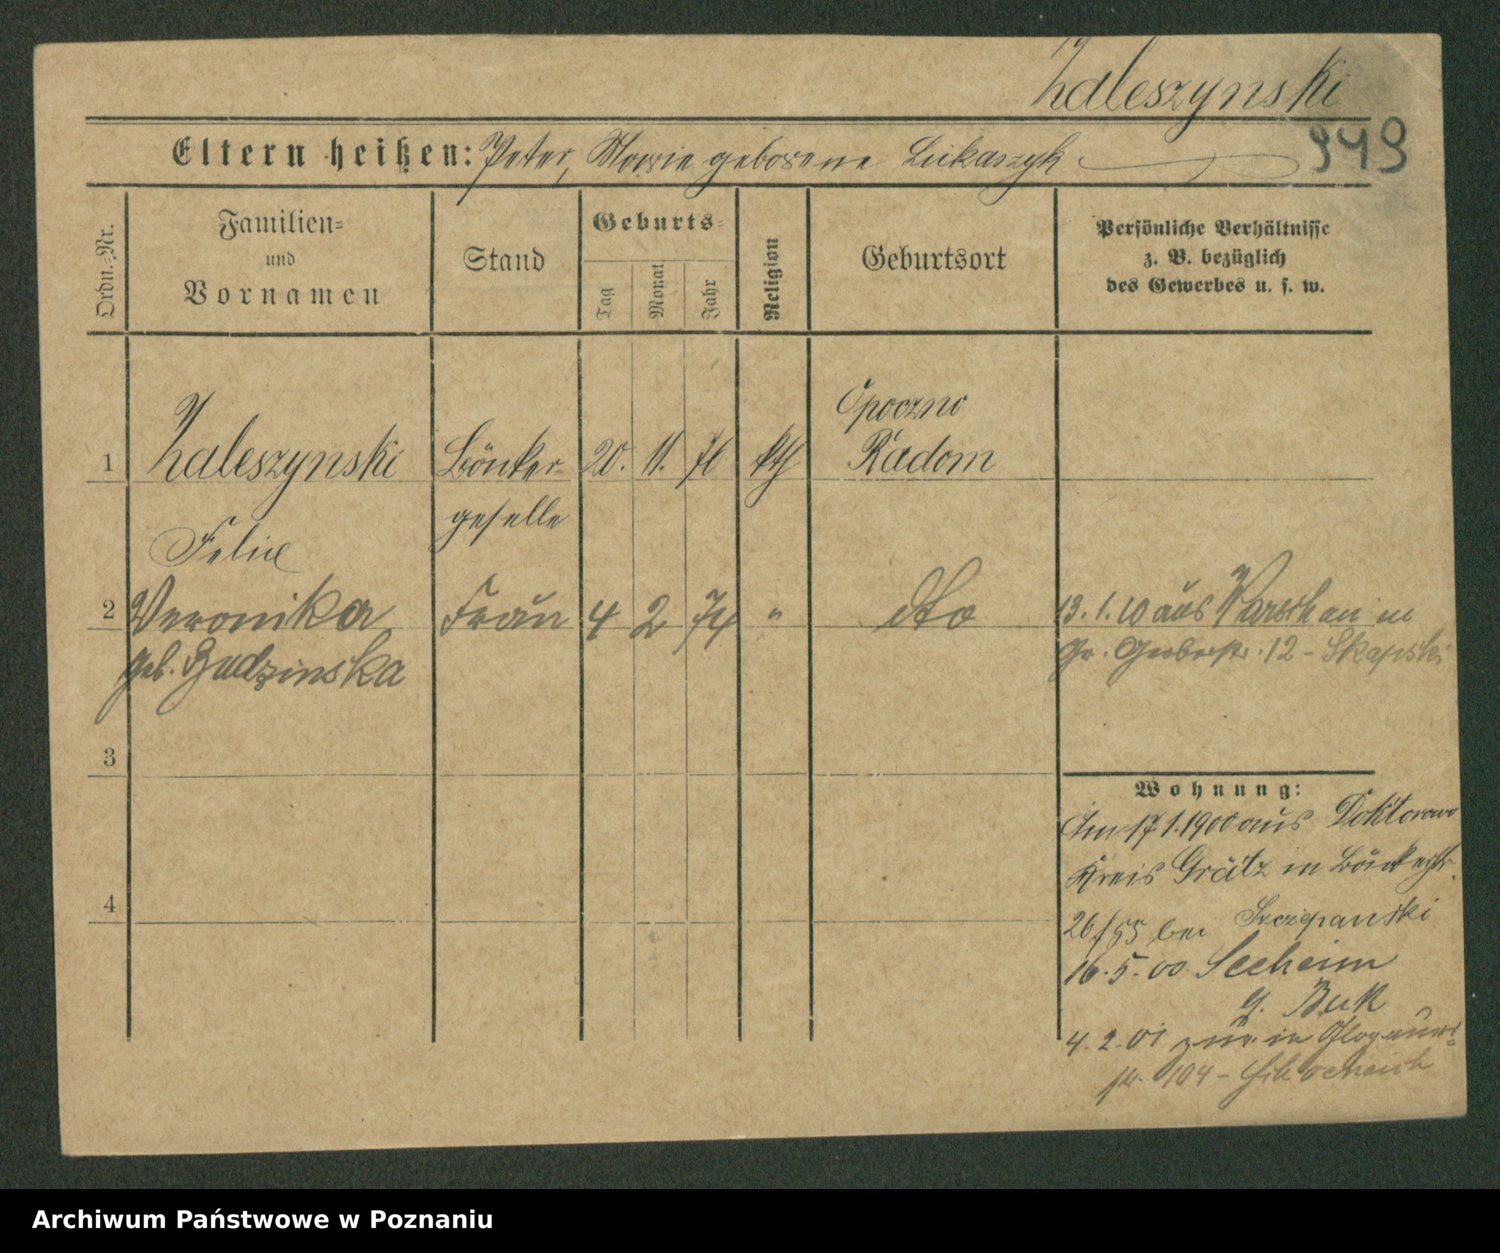 Zaleszynski
Eltern heißen: Peter, Marie geborene Lukaszyk
949
Ordn.-Nr.
Familien-
und
Vornamen
Stand
Geburts-
Tag
Monat
Jahr
Religion
Geburtsort
Persönliche Verhältnisse
z. B. bezüglich
des Gewerbes u. s. w.
Opoczno
1 Zaleszynski 20. 11. kth Radom
geselle
Felix
2 Veronika Frau 4 2 74 " dto 13. 1. 10 aus Warschau in
geb. Budzinska Gr. Gerberstr. 12 - Skapski
3
Wohnung:
Am 17.1.1900 aus Doktorowo
Kreis Grätz in
4 bei Szczepanski
16. 5. 00. Seeheim
b. Buk
4. 2. 01 zur. in Glogauer-
str. 104 -
Archiwum Państwowe w Poznaniu